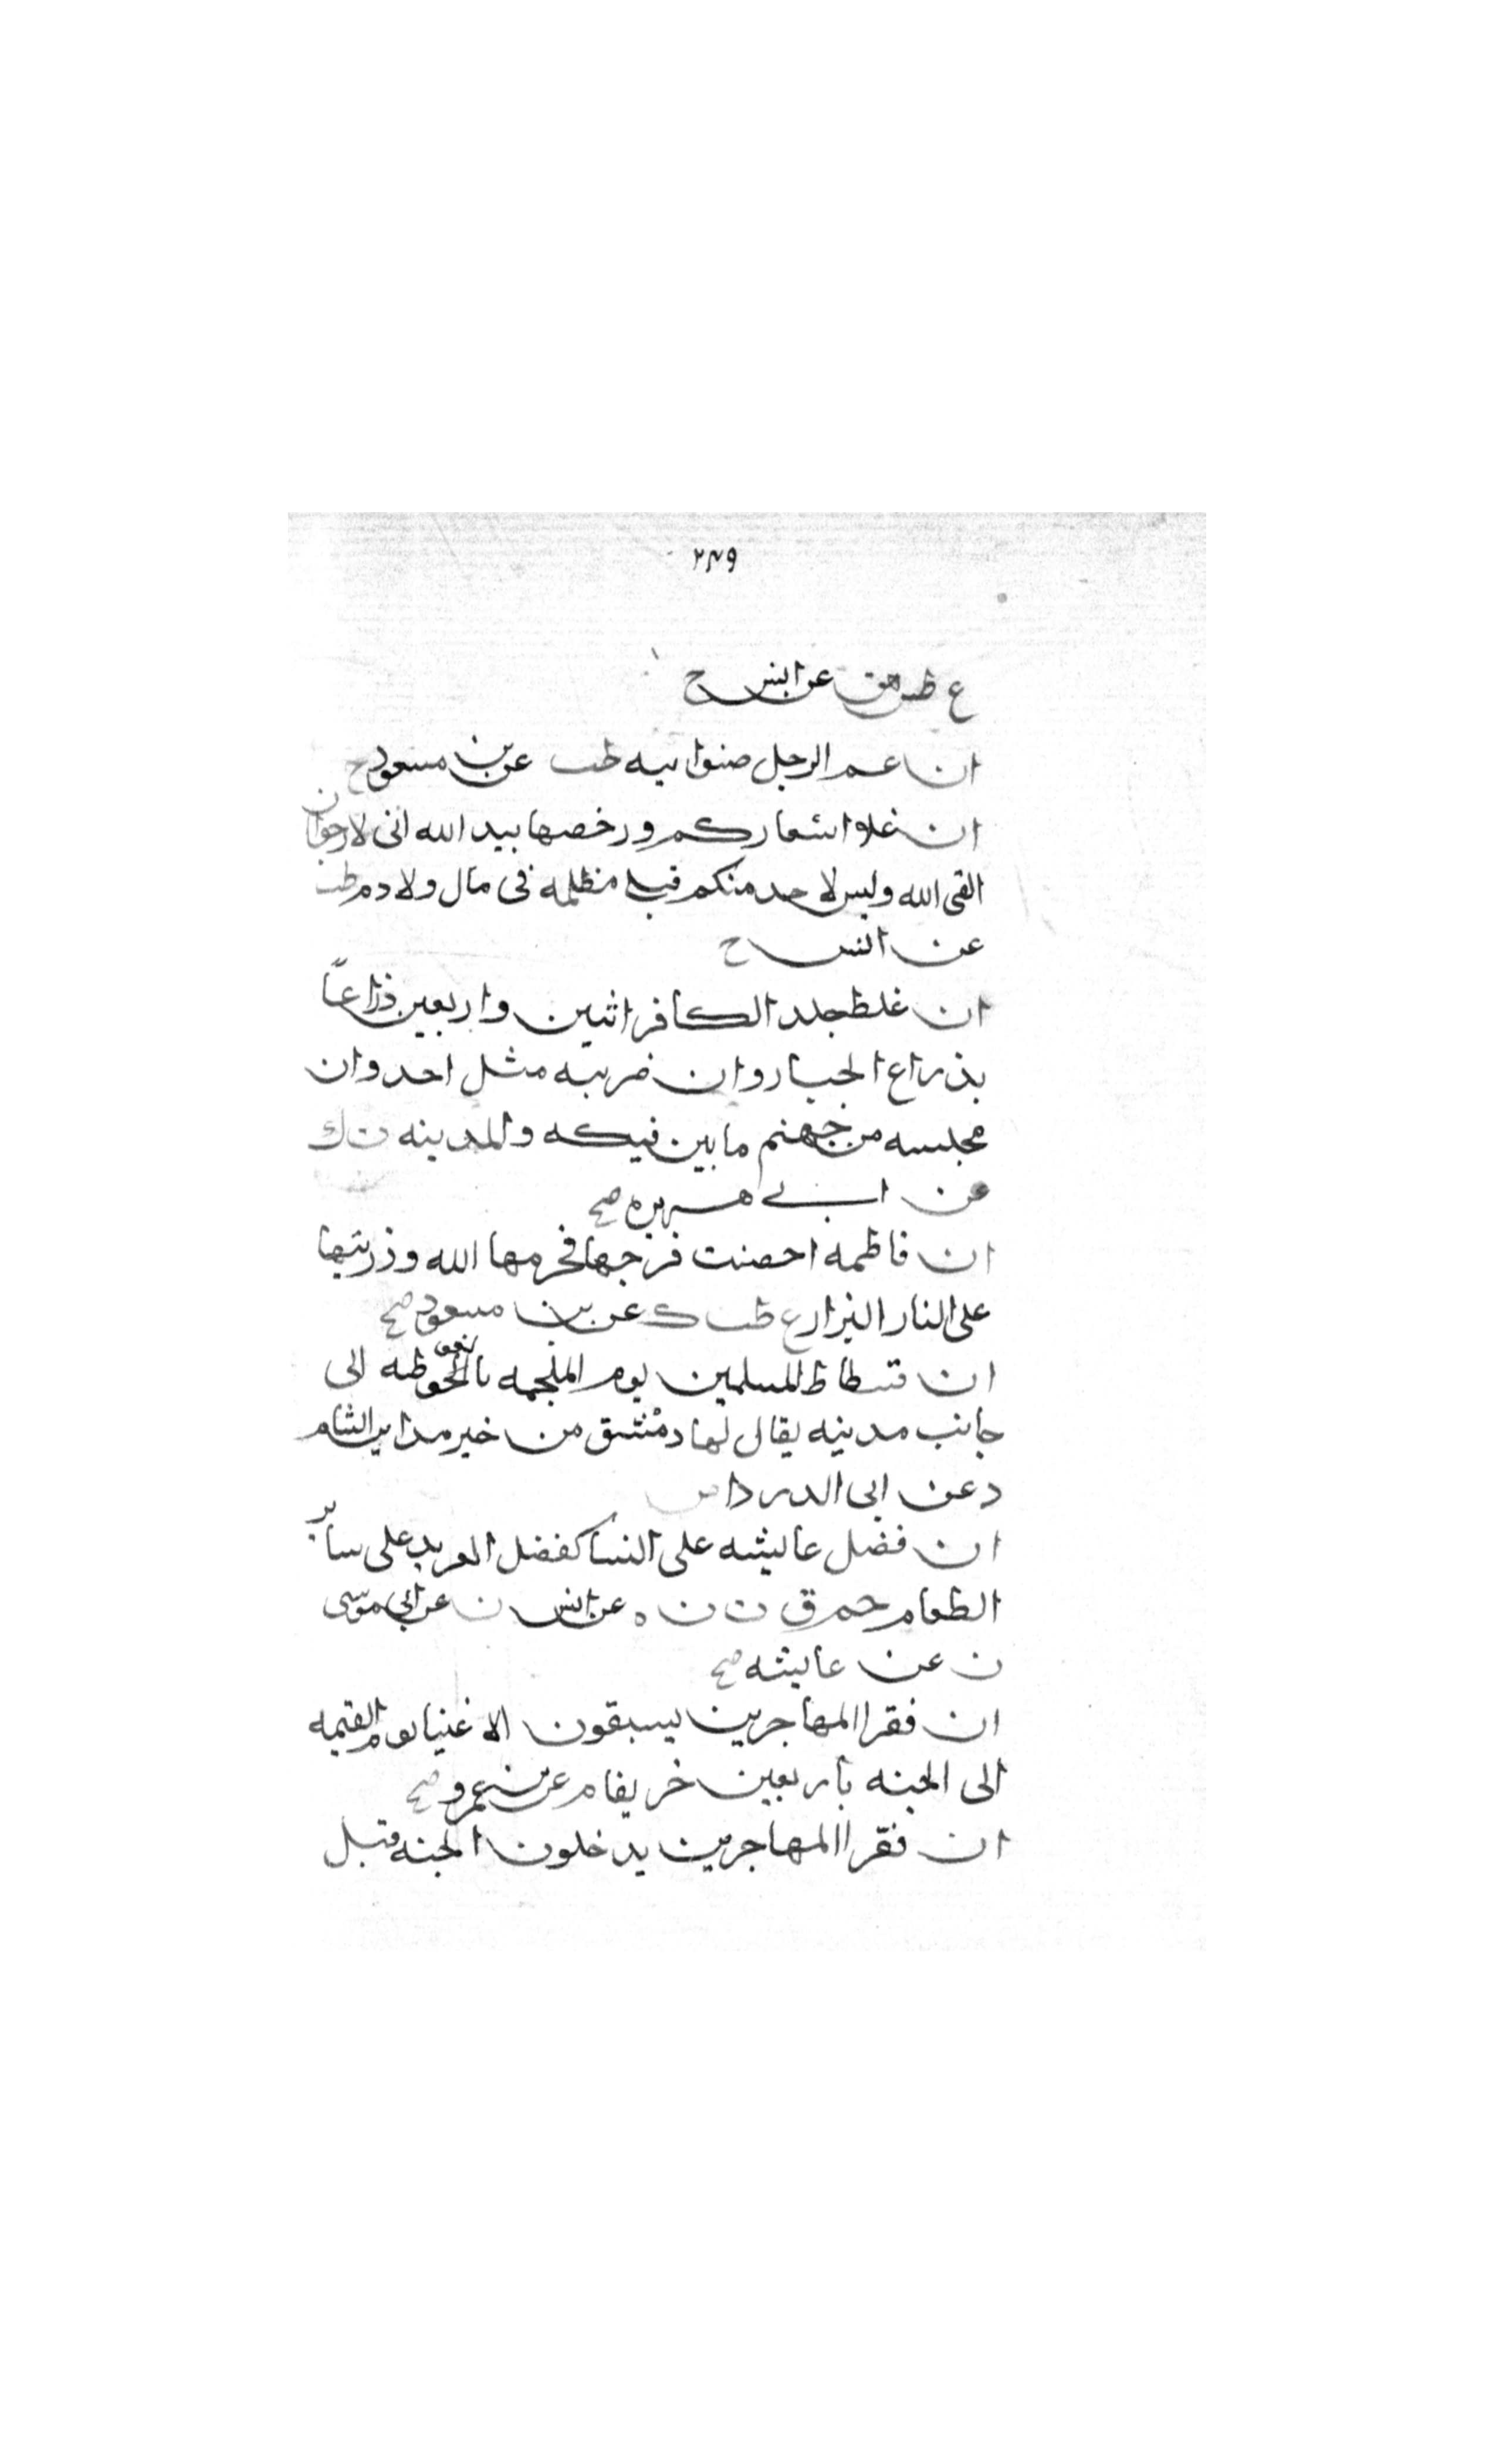 ٢٣٩
ع طس هق عن انس ح
ان عم الرجل صنو ابيه طب عن بن مسعود ح
ان غلو اسعاركم ورخصها بيد الله انى لارجوان
القى الله وليس لاحد منكم قبلى مظلمه فى مال ولا دم طب
عن انس ح
ان غلظ جلد الكافر اثنين واربعين ذراعًا
بذراع الجبار وان ضرسه مثل احد وان
مجلسه من جهنم ما بين مكه والمدينه ت ك
عن ابى هريره صح
ان فاطمه احصنت فرجها فحرمها الله وذريتها
على النار البزار ع طب ك عن بن مسعود صح
ان فسطاط المسلمين يوم الملحمه بالغوطه الى
جانب مدينه يقال لها دمشق من خير مداين الشام
د عن ابى الدرداء
ان فضل عايشه على النسا كفضل الثريد على ساير
الطعام حم ق ت ن ه عن انس ن عن ابى موسى
ن عن عايشه صح
ان فقرا المهاجرين يسبقون الاغنيا يوم القيمه
الى الجنه باربعين خريفا م عن بن عمرو صح
ان فقرا المهاجرين يدخلون الجنه قبل